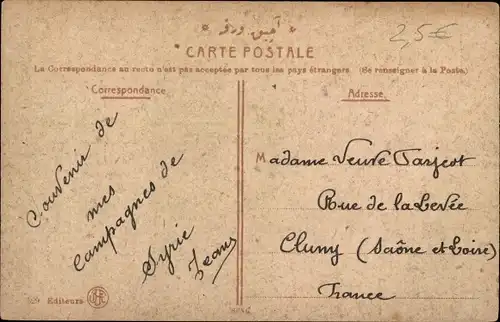 2,5€
CARTE POSTALE
La Correspondance au recto n'est pas acceptée par tous les pays étrangers. (Se renseigner à la Poste.)
Correspondance
Souvenir de
mes
campagnes de
Syrie
Jean
Editeurs
Adresse
Madame Veuve Tarjeot
Rue de la Levée
Cluny (Saône et Loire)
France